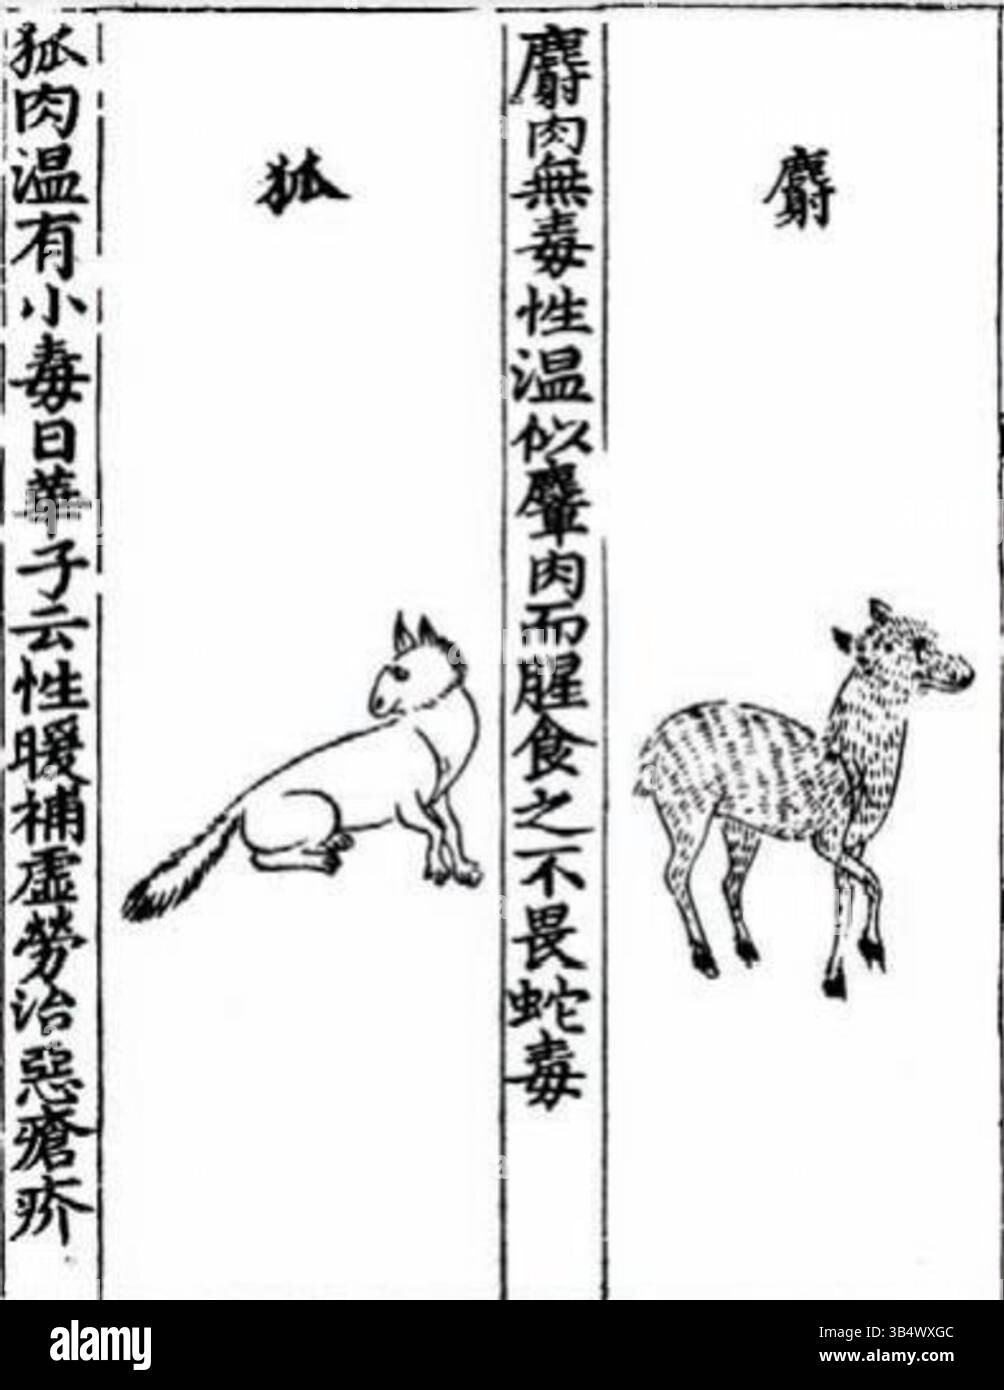 麝
麝肉無毒性温似麞肉而腥食之不畏蛇毒
狐
狐肉温有小毒日華子云性暖補虛勞治惡瘡疥
alamy
Image ID: 3B4WXGC
www.alamy.com